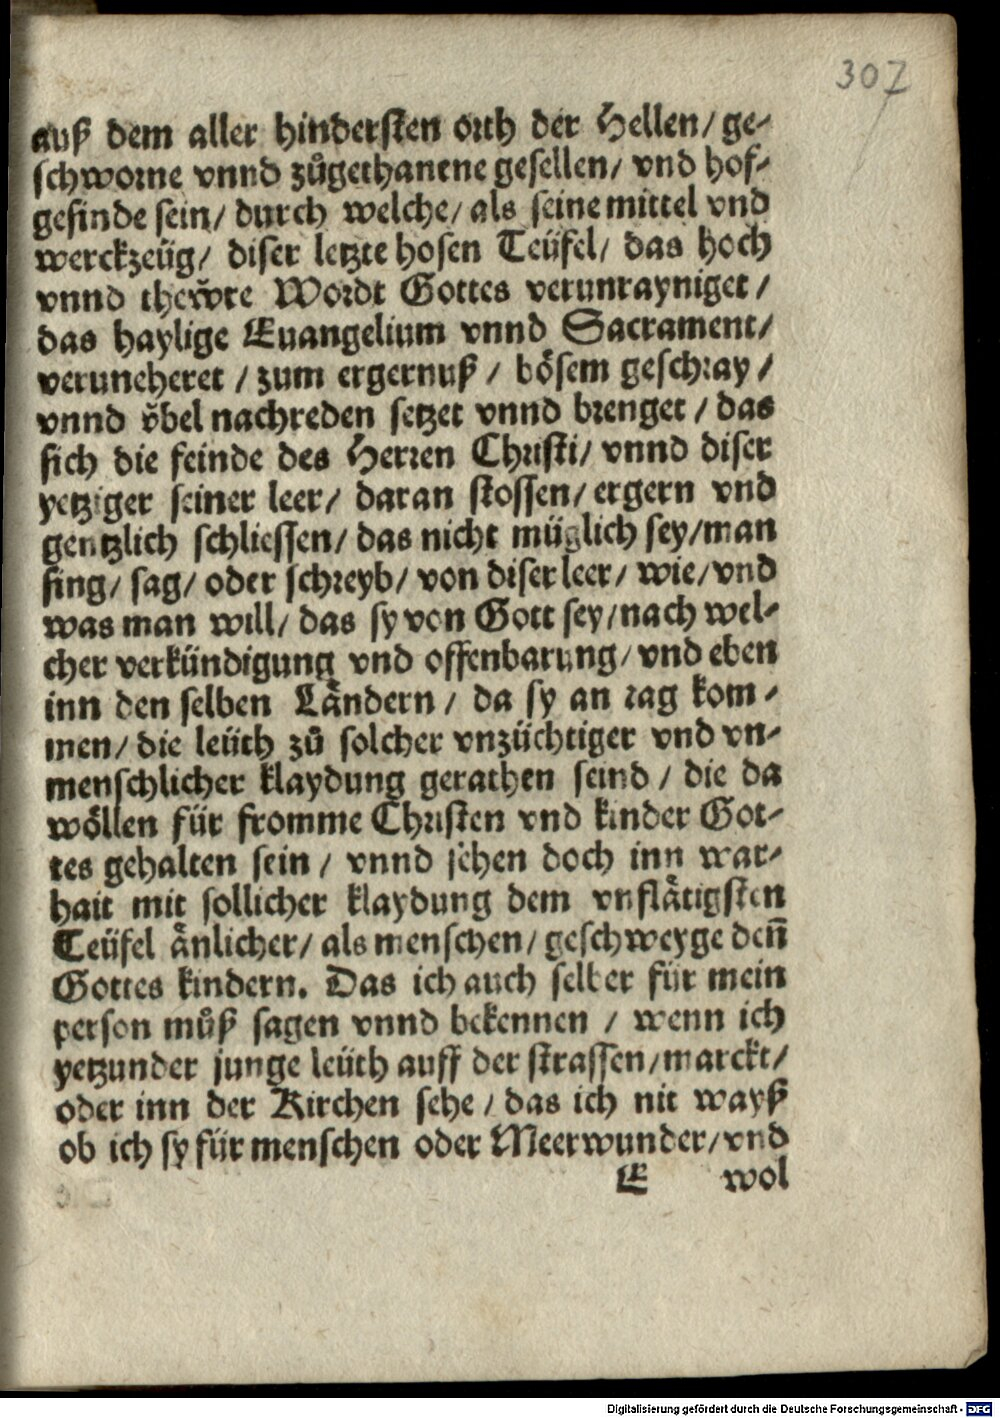 307
auß dem aller hindersten orth der Hellen/ ge-
schworne vnnd zůgethanene gesellen/ vnd hof-
gesinde sein/ durch welche/ als seine mittel vnd
werckzeüg/ diser letzte hosen Teüfel/ das hoch
vnnd thewre Wordt Gottes verunrayniget /
das haylige Euangelium vnnd Sacrament/
veruneheret / zum ergernuß / bösem geschray /
vnnd vͤbel nachreden setzet vnnd brenget / das
sich die feinde des Herren Christi/ vnnd diser
yetziger seiner leer/ daran stossen/ ergern vnd
gentzlich schliessen/ das nicht müglich sey/ man
sing/ sag/ oder schreyb/ von diser leer/ wie/ vnd
was man will/ das sy von Gott sey/ nach wel-
cher verkündigung vnd offenbarung/ vnd eben
inn den selben Ländern / da sy an tag kom-
men/ die leüth zů solcher vnzüchtiger vnd vn-
menschlicher klaydung gerathen seind / die da
wöllen für fromme Christen vnd kinder Got-
tes gehalten sein / vnnd sehen doch inn war-
hait mit sollicher klaydung dem vnflätigsten
Teüfel änlicher/ als menschen/ geschweyge den̄
Gottes kindern. Das ich auch selber für mein
person můß sagen vnnd bekennen / wenn ich
yetzunder junge leüth auff der strassen/ marckt/
oder inn der Kirchen sehe / das ich nit wayß
ob ich sy für menschen oder Meerwunder/ vnd
E wol
Digitalisierung gefördert durch die Deutsche Forschungsgemeinschaft - DFG